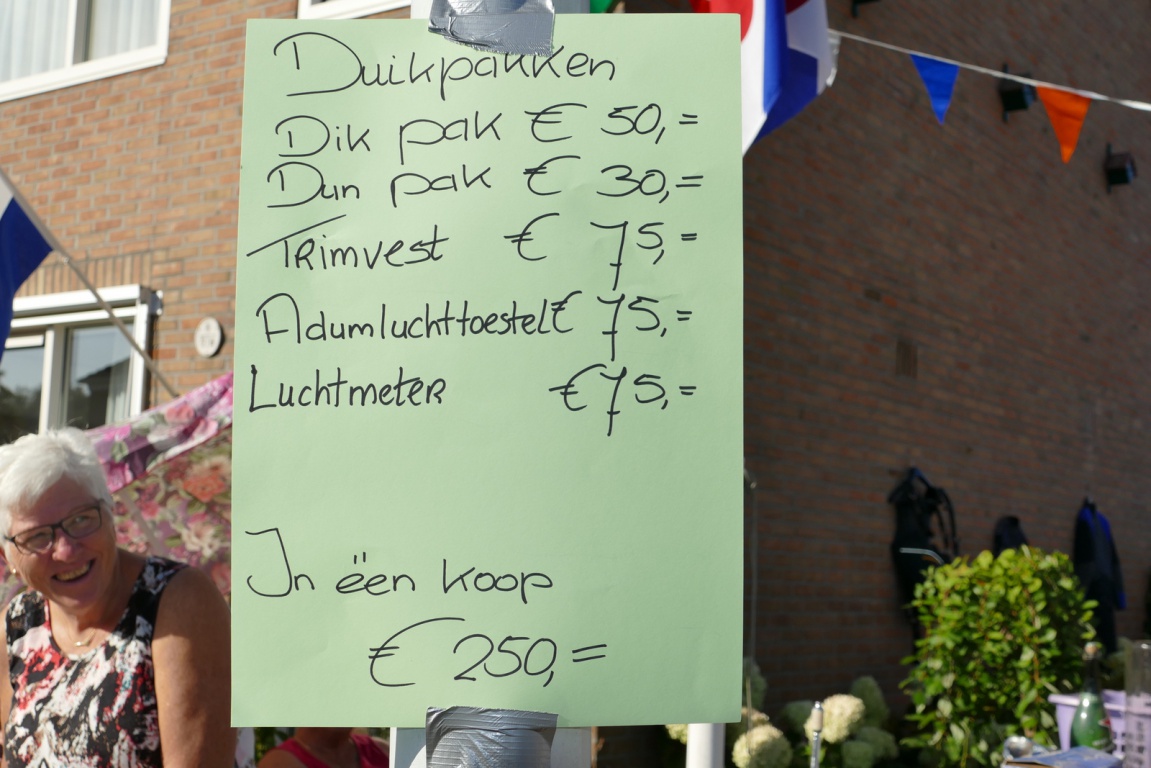 Duikpakken
Dik pak € 50,=
Dun pak € 30,=
Trimvest € 75,=
Adumluchttoestel € 75,=
Luchtmeter € 75,=
In ëen koop
€ 250,=